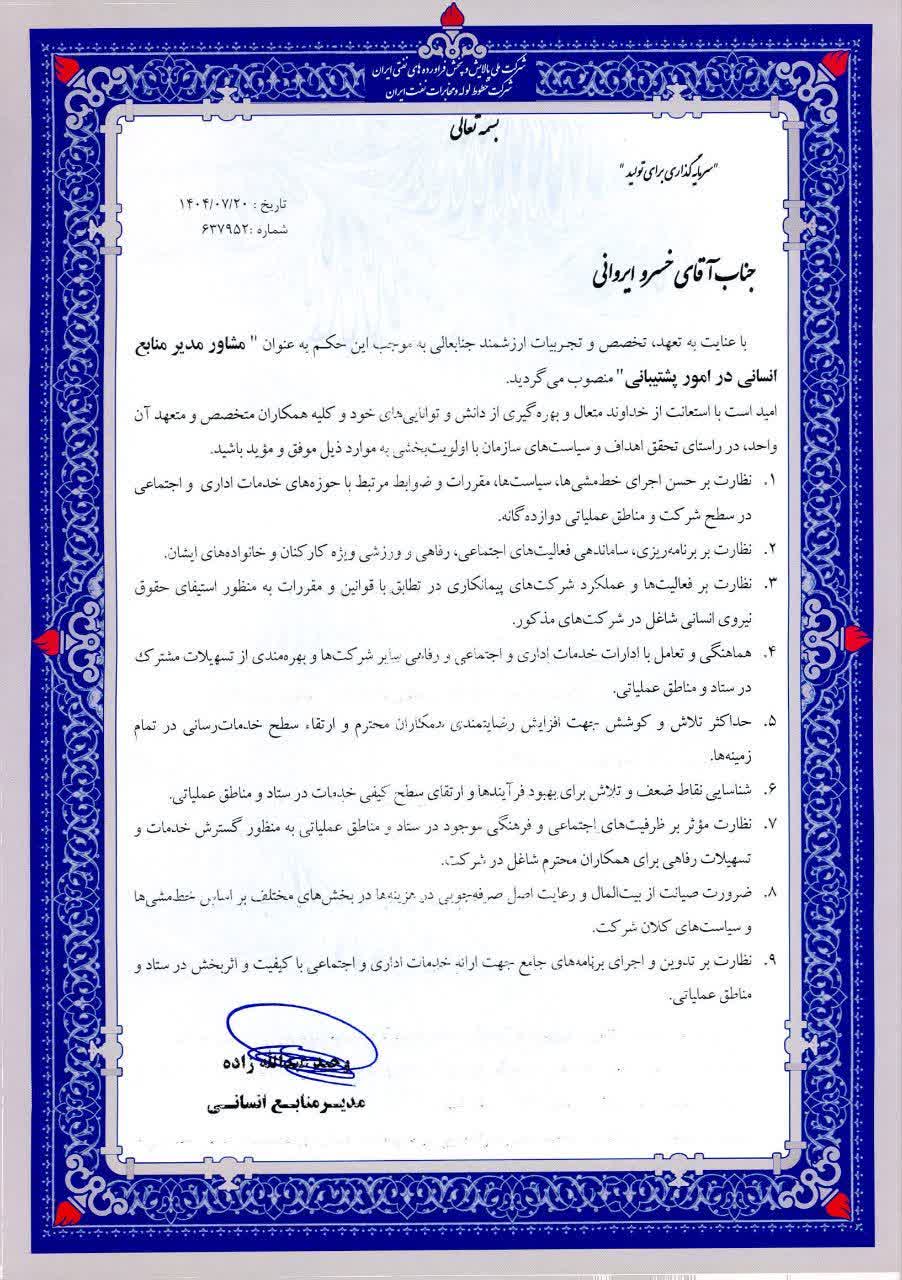 شرکت ملی پالایش و پخش فرآورده های نفتی ایران
شرکت خطوط لوله و مخابرات نفت ایران
بسمه تعالی
"سرمایه گذاری برای تولید"
تاریخ : ۱۴۰۴/۰۷/۲۰
شماره :۶۳۷۹۵۲
جناب آقای خسرو ایروانی
با عنایت به تعهد، تخصص و تجربیات ارزشمند جنابعالی به موجب این حکم به عنوان " مشاور مدیر منابع
انسانی در امور پشتیبانی" منصوب می‌گردید.
امید است با استعانت از خداوند متعال و بهره‌گیری از دانش و توانایی‌های خود و کلیه همکاران متخصص و متعهد آن
واحد، در راستای تحقق اهداف و سیاست‌های سازمان با اولویت‌بخشی به موارد ذیل موفق و مؤید باشید.
۱. نظارت بر حسن اجرای خط‌مشی‌ها، سیاست‌ها، مقررات و ضوابط مرتبط با حوزه‌های خدمات اداری و اجتماعی
در سطح شرکت و مناطق عملیاتی دوازده‌گانه.
۲. نظارت بر برنامه‌ریزی، ساماندهی فعالیت‌های اجتماعی، رفاهی و ورزشی ویژه کارکنان و خانواده‌های ایشان.
۳. نظارت بر فعالیت‌ها و عملکرد شرکت‌های پیمانکاری در تطابق با قوانین و مقررات به منظور استیفای حقوق
نیروی انسانی شاغل در شرکت‌های مذکور.
۴. هماهنگی و تعامل با ادارات خدمات اداری و اجتماعی و رفاهی سایر شرکت‌ها و بهره‌مندی از تسهیلات مشترک
در ستاد و مناطق عملیاتی.
۵. حداکثر تلاش و کوشش جهت افزایش رضایتمندی همکاران محترم و ارتقاء سطح خدمات‌رسانی در تمام
زمینه‌ها.
۶. شناسایی نقاط ضعف و تلاش برای بهبود فرآیندها و ارتقای سطح کیفی خدمات در ستاد و مناطق عملیاتی.
۷. نظارت مؤثر بر ظرفیت‌های اجتماعی و فرهنگی موجود در ستاد و مناطق عملیاتی به منظور گسترش خدمات و
تسهیلات رفاهی برای همکاران محترم شاغل در شرکت.
۸. ضرورت صیانت از بیت‌المال و رعایت اصل صرفه‌جویی در هزینه‌ها در بخش‌های مختلف بر اساس خط‌مشی‌ها
و سیاست‌های کلان شرکت.
۹. نظارت بر تدوین و اجرای برنامه‌های جامع جهت ارائه خدمات اداری و اجتماعی با کیفیت و اثربخش در ستاد و
مناطق عملیاتی.
زاده
مدیر منابع انسانی